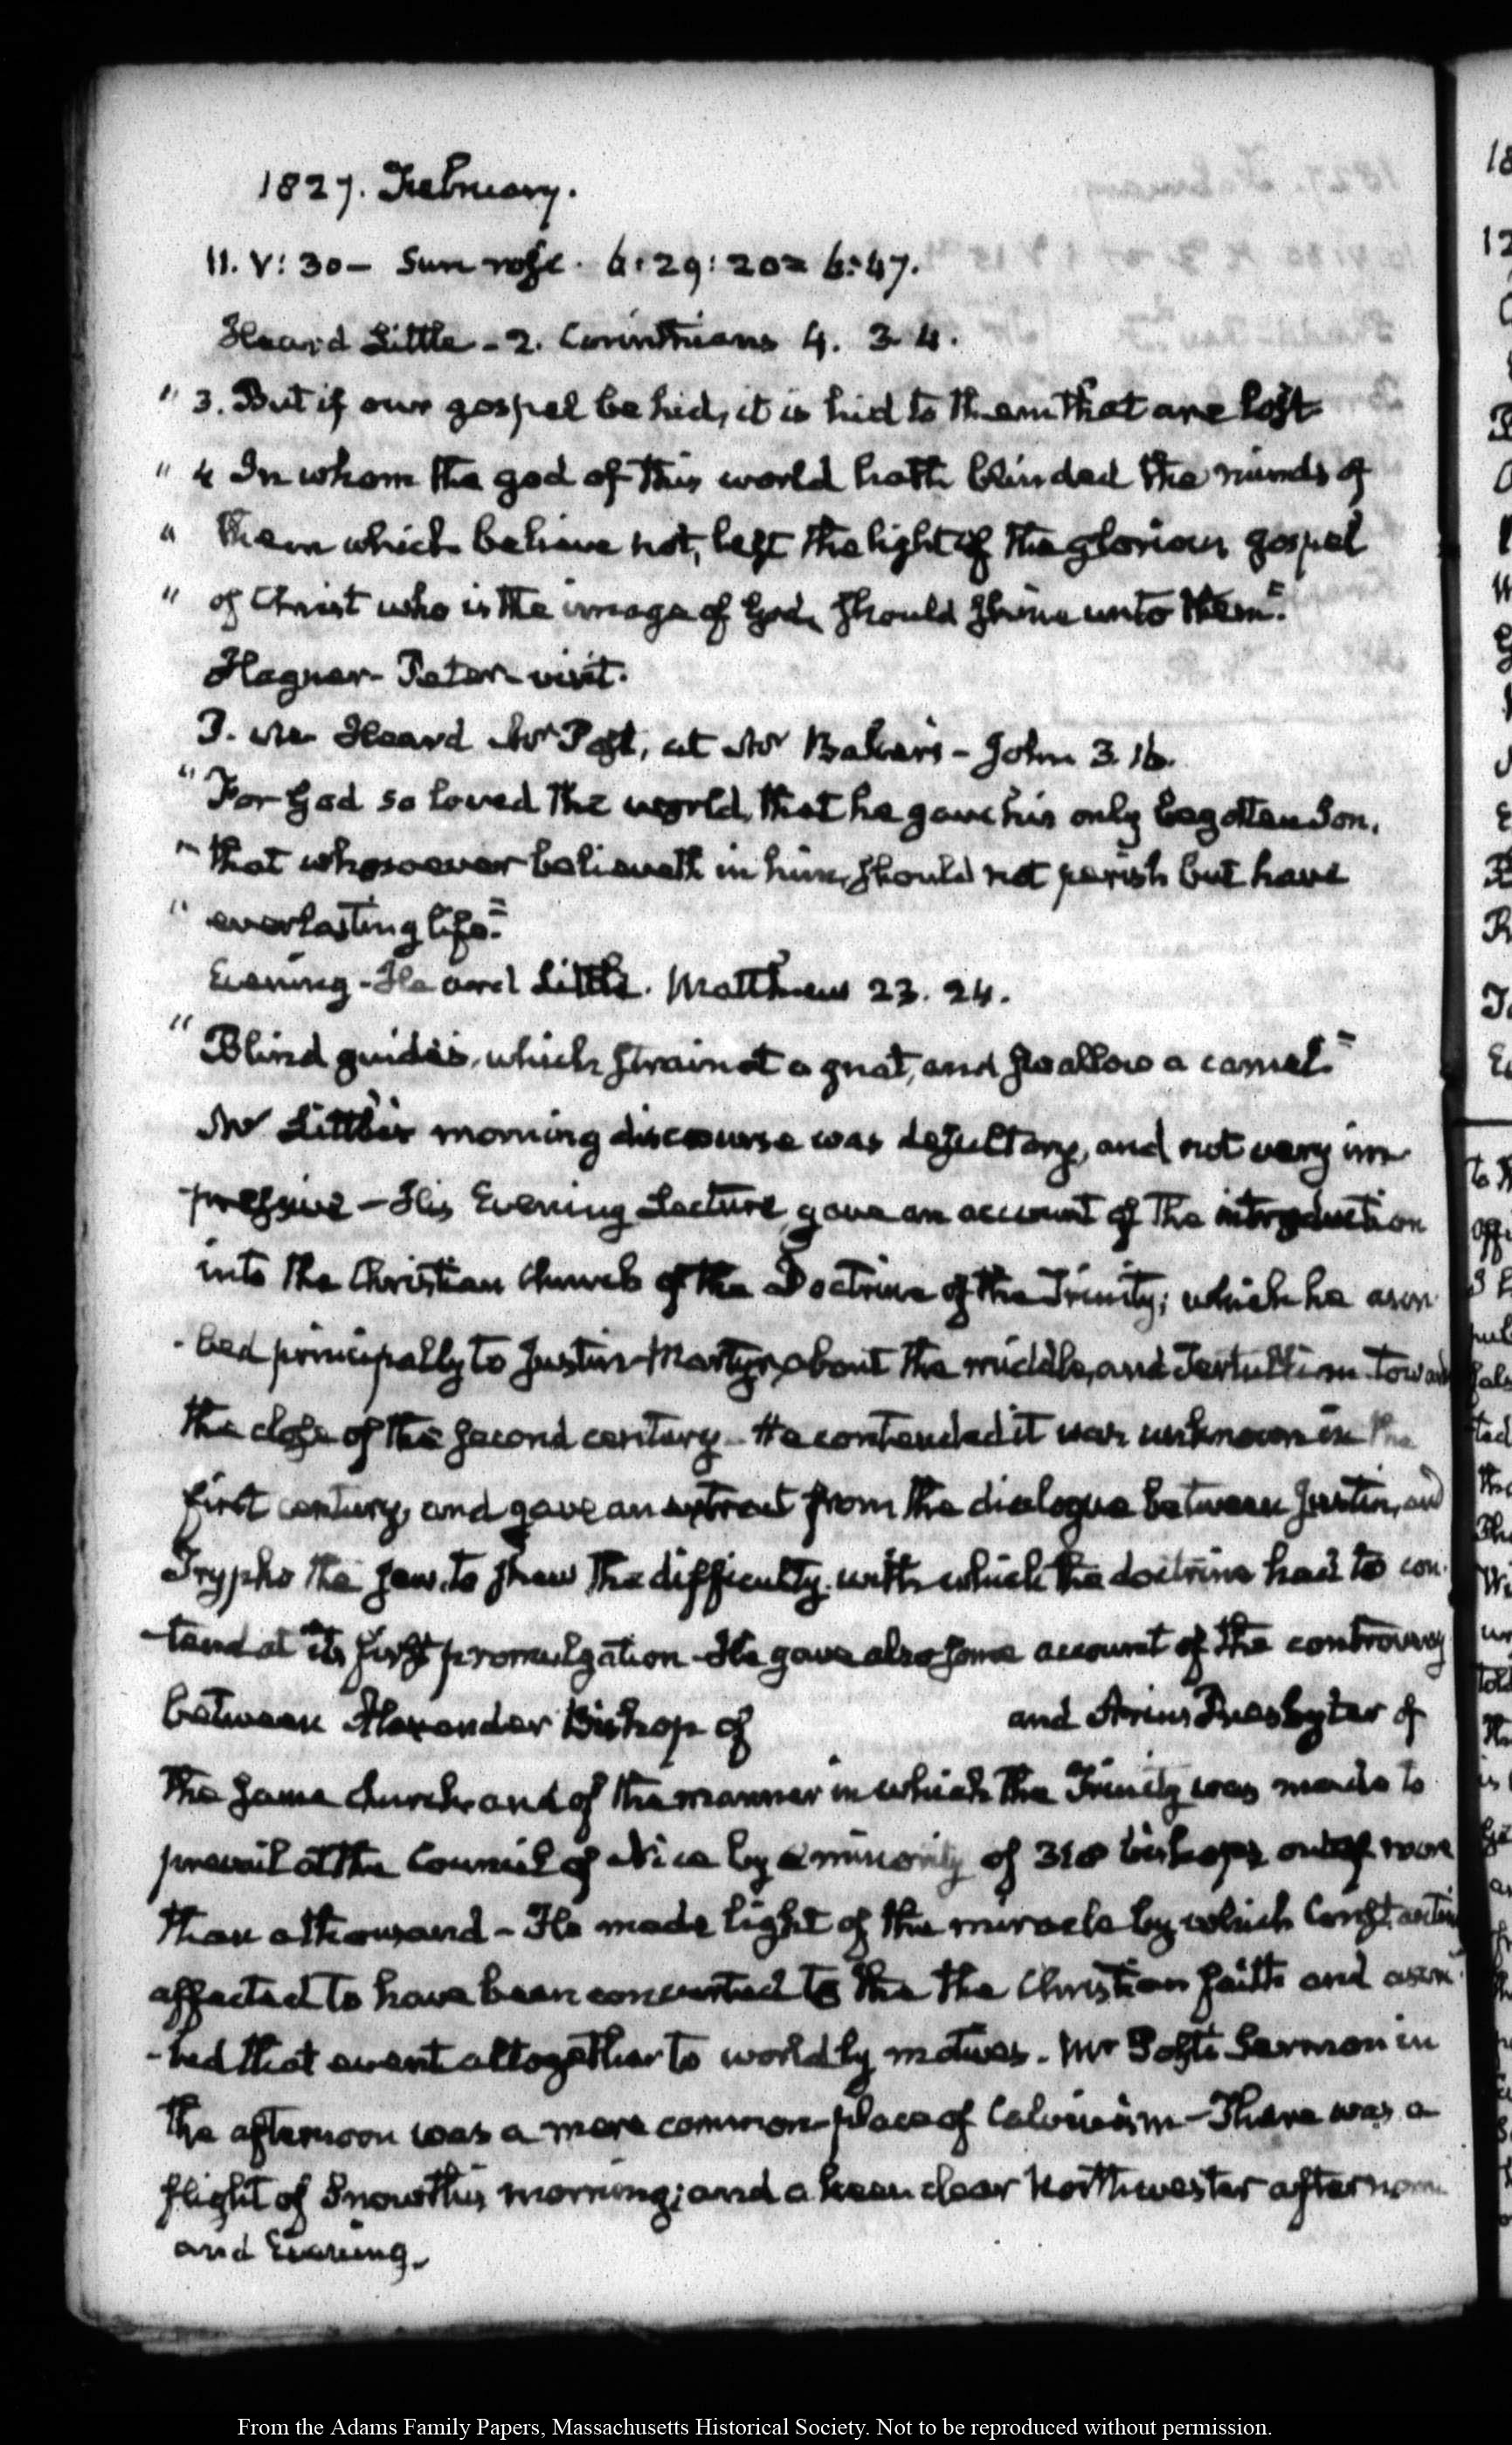 1827. February.
11. V: 30 – Sun rose. 6:29:20= 6:47.
Heard Little – 2. Corinthians 4. 3. 4.
" 3. But if our gospel be hid, it is hid to them that are lost
" 4 In whom the god of this world hath blinded the minds of
" them which believe not, lest the light of the glorious gospel
" of Christ who is the image of God, should shine unto them."
Hagner – Peter – visit.
Heard Mr Post, at Mr Baker's – John 3. 16.
"For God so loved the world, that he gave his only begotten Son,
"that whosoever believeth in him, should not perish but have
" everlasting life."
Evening – Heard Little. Matthew 23. 24.
"Blind guides, which strain at a gnat, and swallow a camel."
Mr Little's morning discourse was desultory, and not very im-
pressive – His Evening Lecture, gave an account of the introduction
into the Christian Church of the Doctrine of the Trinity; which he ascri-
-bed principally to Justin Martyr, about the middle, and Tertullian toward
the close of the second century – He contended it was unknown in the
first century, and gave an extract from the dialogue between Justin, and
Trypho the Jew, to shew the difficulty with which the doctrine had to con-
-tend at its first promulgation – He gave also some account of the controversy
between Alexander Bishop of and Arius Presbyter of
the same church, and of the manner in which the Trinity was made to
prevail at the Council of Nice by a minority of 318 bishops out of more
than a thousand – He made light of the miracle by which Constantine
affected to have been converted to the the Christian faith and ascri-
-bed that event altogether to worldly motives. Mr Post's Sermon in
the afternoon was a mere common-place of Calvinism – There was a
flight of Snow this morning; and a keen clear Northwester afternoon
and Evening.
From the Adams Family Papers, Massachusetts Historical Society. Not to be reproduced without permission.